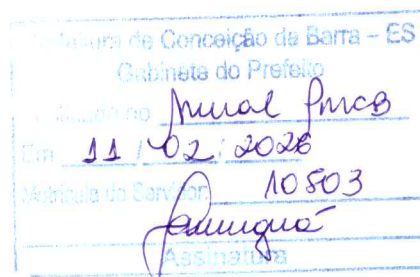 Prefeitura de Conceição da Barra – ES
Gabinete do Prefeito
Publicado no Mural PMCB
Em 11 / 02 / 2026
Matrícula do Servidor: 10503
Assinatura